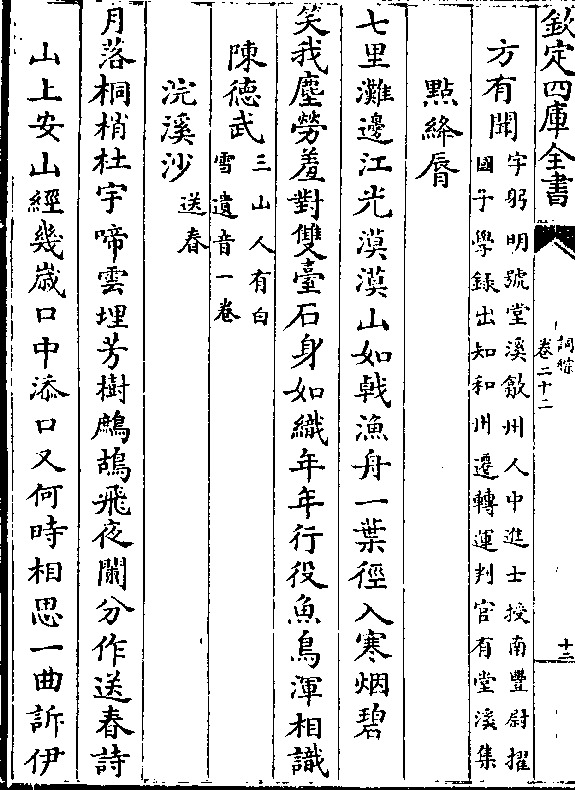 欽定四庫全書
詞綜
卷二十二
十三
方有聞
字躬明號堂溪歙州人中進士授南豐尉擢
國子學錄出知和州遷轉運判官有堂溪集
點絳脣
七里灘邊江光漠漠山如戟漁舟一葉徑入寒烟碧
笑我塵勞羞對雙臺石身如織年年行役魚鳥渾相識
陳德武
三山人有白
雪遺音一卷
浣溪沙
送春
月落桐梢杜宇啼雲埋芳樹鷓鴣飛夜闌分作送春詩
山上安山經幾歲口中添口又何時相思一曲訴伊